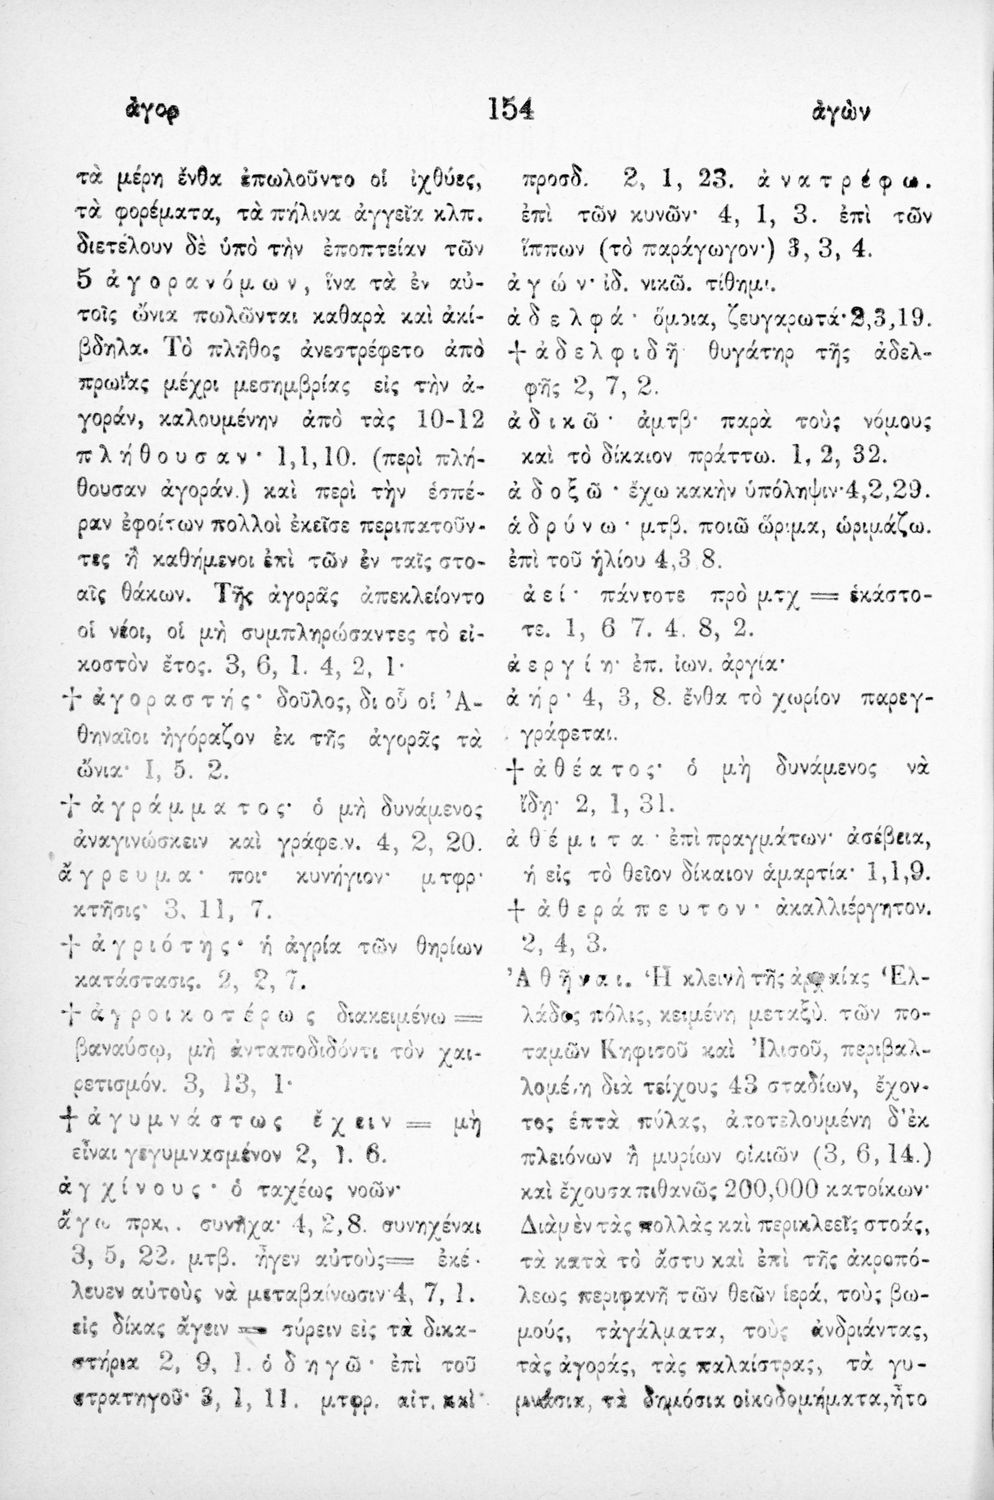 ἀγορ 154 ἀγὼν
τὰ μέρη ἔνθα ἐπωλοῦντο οἱ ἰχθύες,
τὰ φορέματα, τὰ πήλινα ἀγγεῖα κλπ.
διετέλουν δὲ ὑπὸ τὴν ἐποπτείαν τῶν
5 ἀγορανόμων, ἵνα τὰ ἐν αὐ-
τοῖς ὤνια πωλῶνται καθαρὰ καὶ ἀκί-
βδηλα. Τὸ πλῆθος ἀνεστρέφετο ἀπὸ
πρωΐας μέχρι μεσημβρίας εἰς τὴν ἀ-
γοράν, καλουμένην ἀπὸ τὰς 10-12
πλήθουσαν· 1,1,10. (περὶ πλή-
θουσαν ἀγοράν.) καὶ περὶ τὴν ἑσπέ-
ραν ἐφοίτων πολλοὶ ἐκεῖσε περιπατοῦν-
τες ἢ καθήμενοι ἐπὶ τῶν ἐν ταῖς στο-
αῖς θάκων. Τῆς ἀγορᾶς ἀπεκλείοντο
οἱ νέοι, οἱ μὴ συμπληρώσαντες τὸ εἰ-
κοστὸν ἔτος. 3, 6, 1. 4, 2, 1·
† ἀγοραστής· δοῦλος, δι οὗ οἱ Ἀ-
θηναῖοι ἠγόραζον ἐκ τῆς ἀγορᾶς τὰ
ὤνια· Ι, 5. 2.
† ἀγράμματος· ὁ μὴ δυνάμενος
ἀναγινώσκειν καὶ γράφειν. 4, 2, 20.
ἄγρευμα· ποι· κυνήγιον· μτφρ·
κτῆσις· 3, 11, 7.
† ἀγριότης· ἡ ἀγρία τῶν θηρίων
κατάστασις. 2, 2, 7.
† ἀγροικοτέρως διακειμένω =
βαναύσῳ, μὴ ἀνταποδιδόντι τὸν χαι-
ρετισμόν. 3, 13, 1·
† ἀγυμνάστως ἔχειν = μὴ
εἶναι γεγυμνασμένον 2, 1. 6.
ἀγχίνους· ὁ ταχέως νοῶν·
ἄγω πρκ. συνῆχα· 4, 2,8. συνηχέναι
3, 5, 22. μτβ. ἦγεν αὐτοὺς= ἐκέ-
λευεν αὐτοὺς νὰ μεταβαίνωσιν·4, 7, 1.
εἰς δίκας ἄγειν = σύρειν εἰς τὰ δικα-
στήρια 2, 9, 1. ὁδηγῶ· ἐπὶ τοῦ
στρατηγοῦ· 3, 1, 11. μτφρ. αἰτ. καὶ
προσδ. 2, 1, 23. ἀνατρέφω.
ἐπὶ τῶν κυνῶν· 4, 1, 3. ἐπὶ τῶν
ἵππων (τὸ παράγωγον·) 3, 3, 4.
ἀγών· ἰδ. νικῶ. τίθημι.
ἀδελφά· ὅμοια, ζευγαρωτά·2,3,19.
† ἀδελφιδῆ· θυγάτηρ τῆς ἀδελ-
φῆς 2, 7, 2.
ἀδικῶ· ἀμτβ· παρὰ τοὺς νόμους
καὶ τὸ δίκαιον πράττω. 1, 2, 32.
ἀδοξῶ· ἔχω κακὴν ὑπόληψιν·4,2,29.
ἁδρύνω· μτβ. ποιῶ ὥριμα, ὡριμάζω.
ἐπὶ τοῦ ἡλίου 4,3 8.
ἀεί· πάντοτε πρὸ μτχ = ἑκάστο-
τε. 1, 6 7. 4. 8, 2.
ἀεργίη· ἐπ. ἰων. ἀργία·
ἀήρ· 4, 3, 8. ἔνθα τὸ χωρίον παρεγ-
γράφεται.
† ἀθέατος· ὁ μὴ δυνάμενος νὰ
ἴδῃ· 2, 1, 31.
ἀθέμιτα· ἐπὶ πραγμάτων· ἀσέβεια,
ἡ εἰς τὸ θεῖον δίκαιον ἁμαρτία· 1,1,9.
† ἀθεράπευτον· ἀκαλλιέργητον.
2, 4, 3.
Ἀθῆναι. Ἡ κλεινὴ τῆς ἀρχαίας Ἑλ-
λάδος πόλις, κειμένη μεταξὺ τῶν πο-
ταμῶν Κηφισοῦ καὶ Ἰλισοῦ, περιβαλ-
λομένη διὰ τείχους 43 σταδίων, ἔχον-
τος ἑπτὰ πύλας, ἀποτελουμένη δ' ἐκ
πλειόνων ἢ μυρίων οἰκιῶν (3, 6, 14.)
καὶ ἔχουσα πιθανῶς 200,000 κατοίκων·
Διὰ μὲν τὰς πολλὰς καὶ περικλεεῖς στοάς,
τὰ κατὰ τὸ ἄστυ καὶ ἐπὶ τῆς ἀκροπό-
λεως περιφανῆ τῶν θεῶν ἱερά, τοὺς βω-
μούς, τἀγάλματα, τοὺς ἀνδριάντας,
τὰς ἀγοράς, τὰς παλαίστρας, τὰ γυ-
μνάσια, τὰ δημόσια οἰκοδομήματα, ἦτο